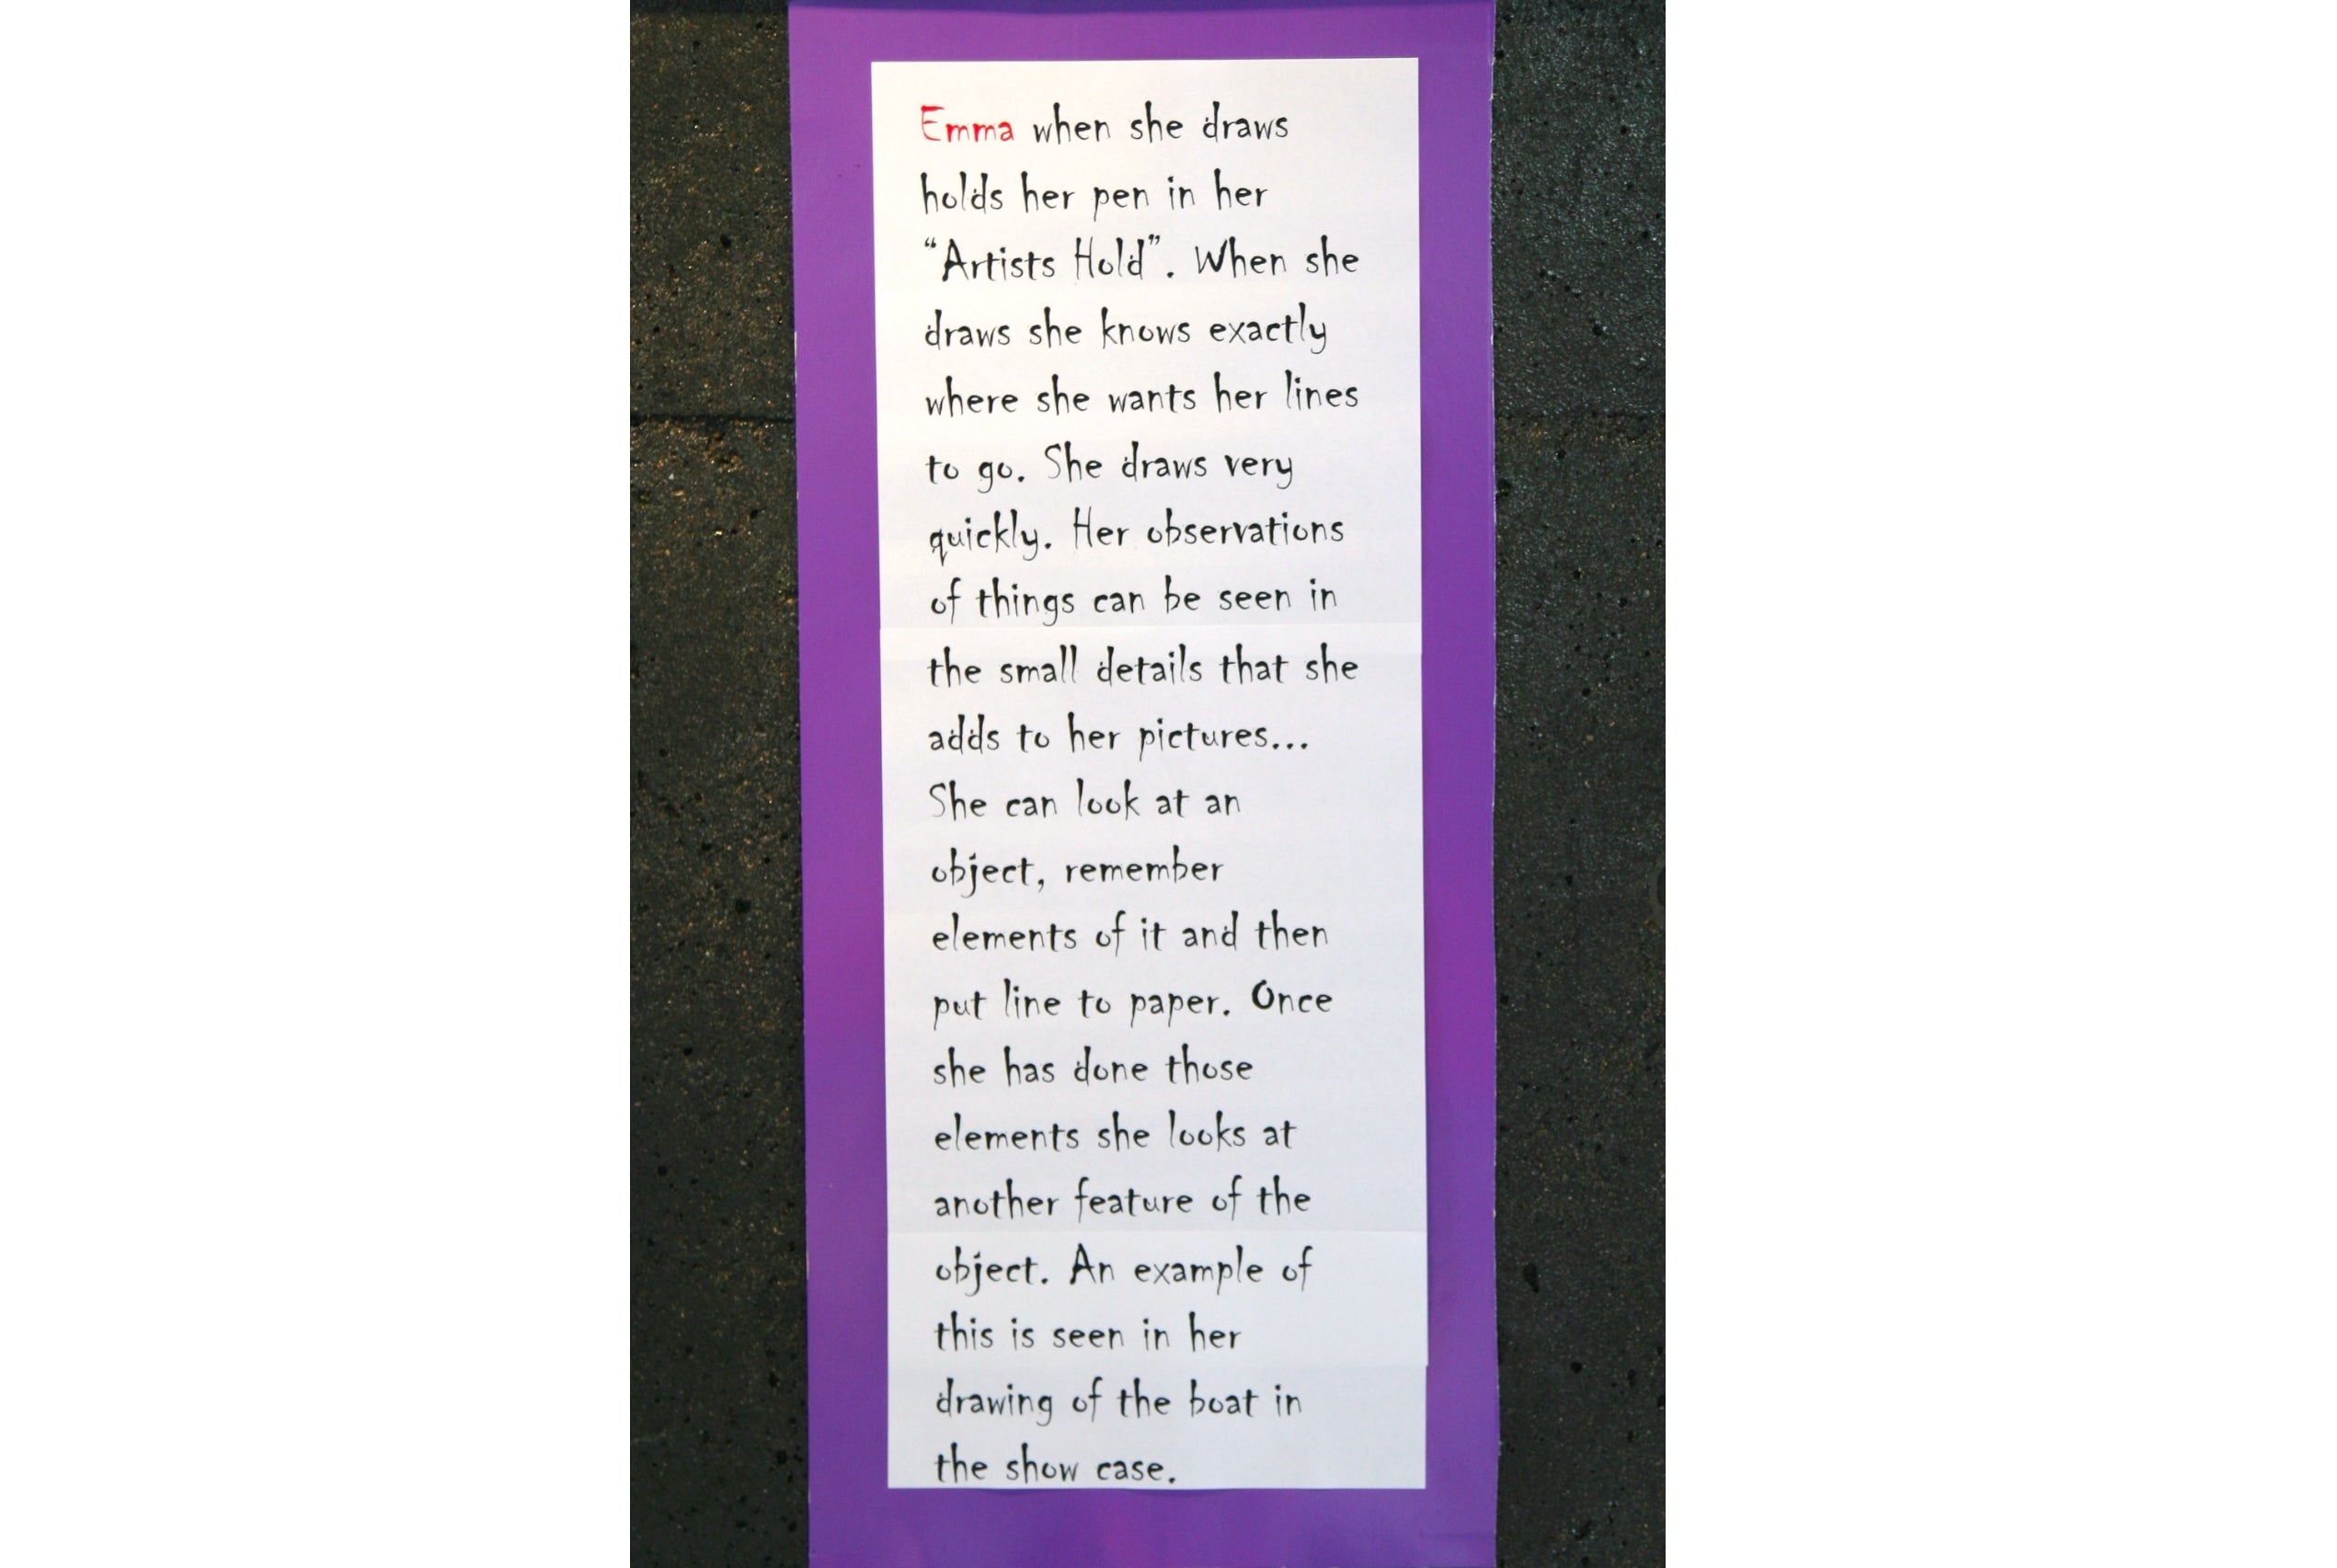 Emma when she draws
holds her pen in her
“Artists Hold”. When she
draws she knows exactly
where she wants her lines
to go. She draws very
quickly. Her observations
of things can be seen in
the small details that she
adds to her pictures...
She can look at an
object, remember
elements of it and then
put line to paper. Once
she has done those
elements she looks at
another feature of the
object. An example of
this is seen in her
drawing of the boat in
the show case.